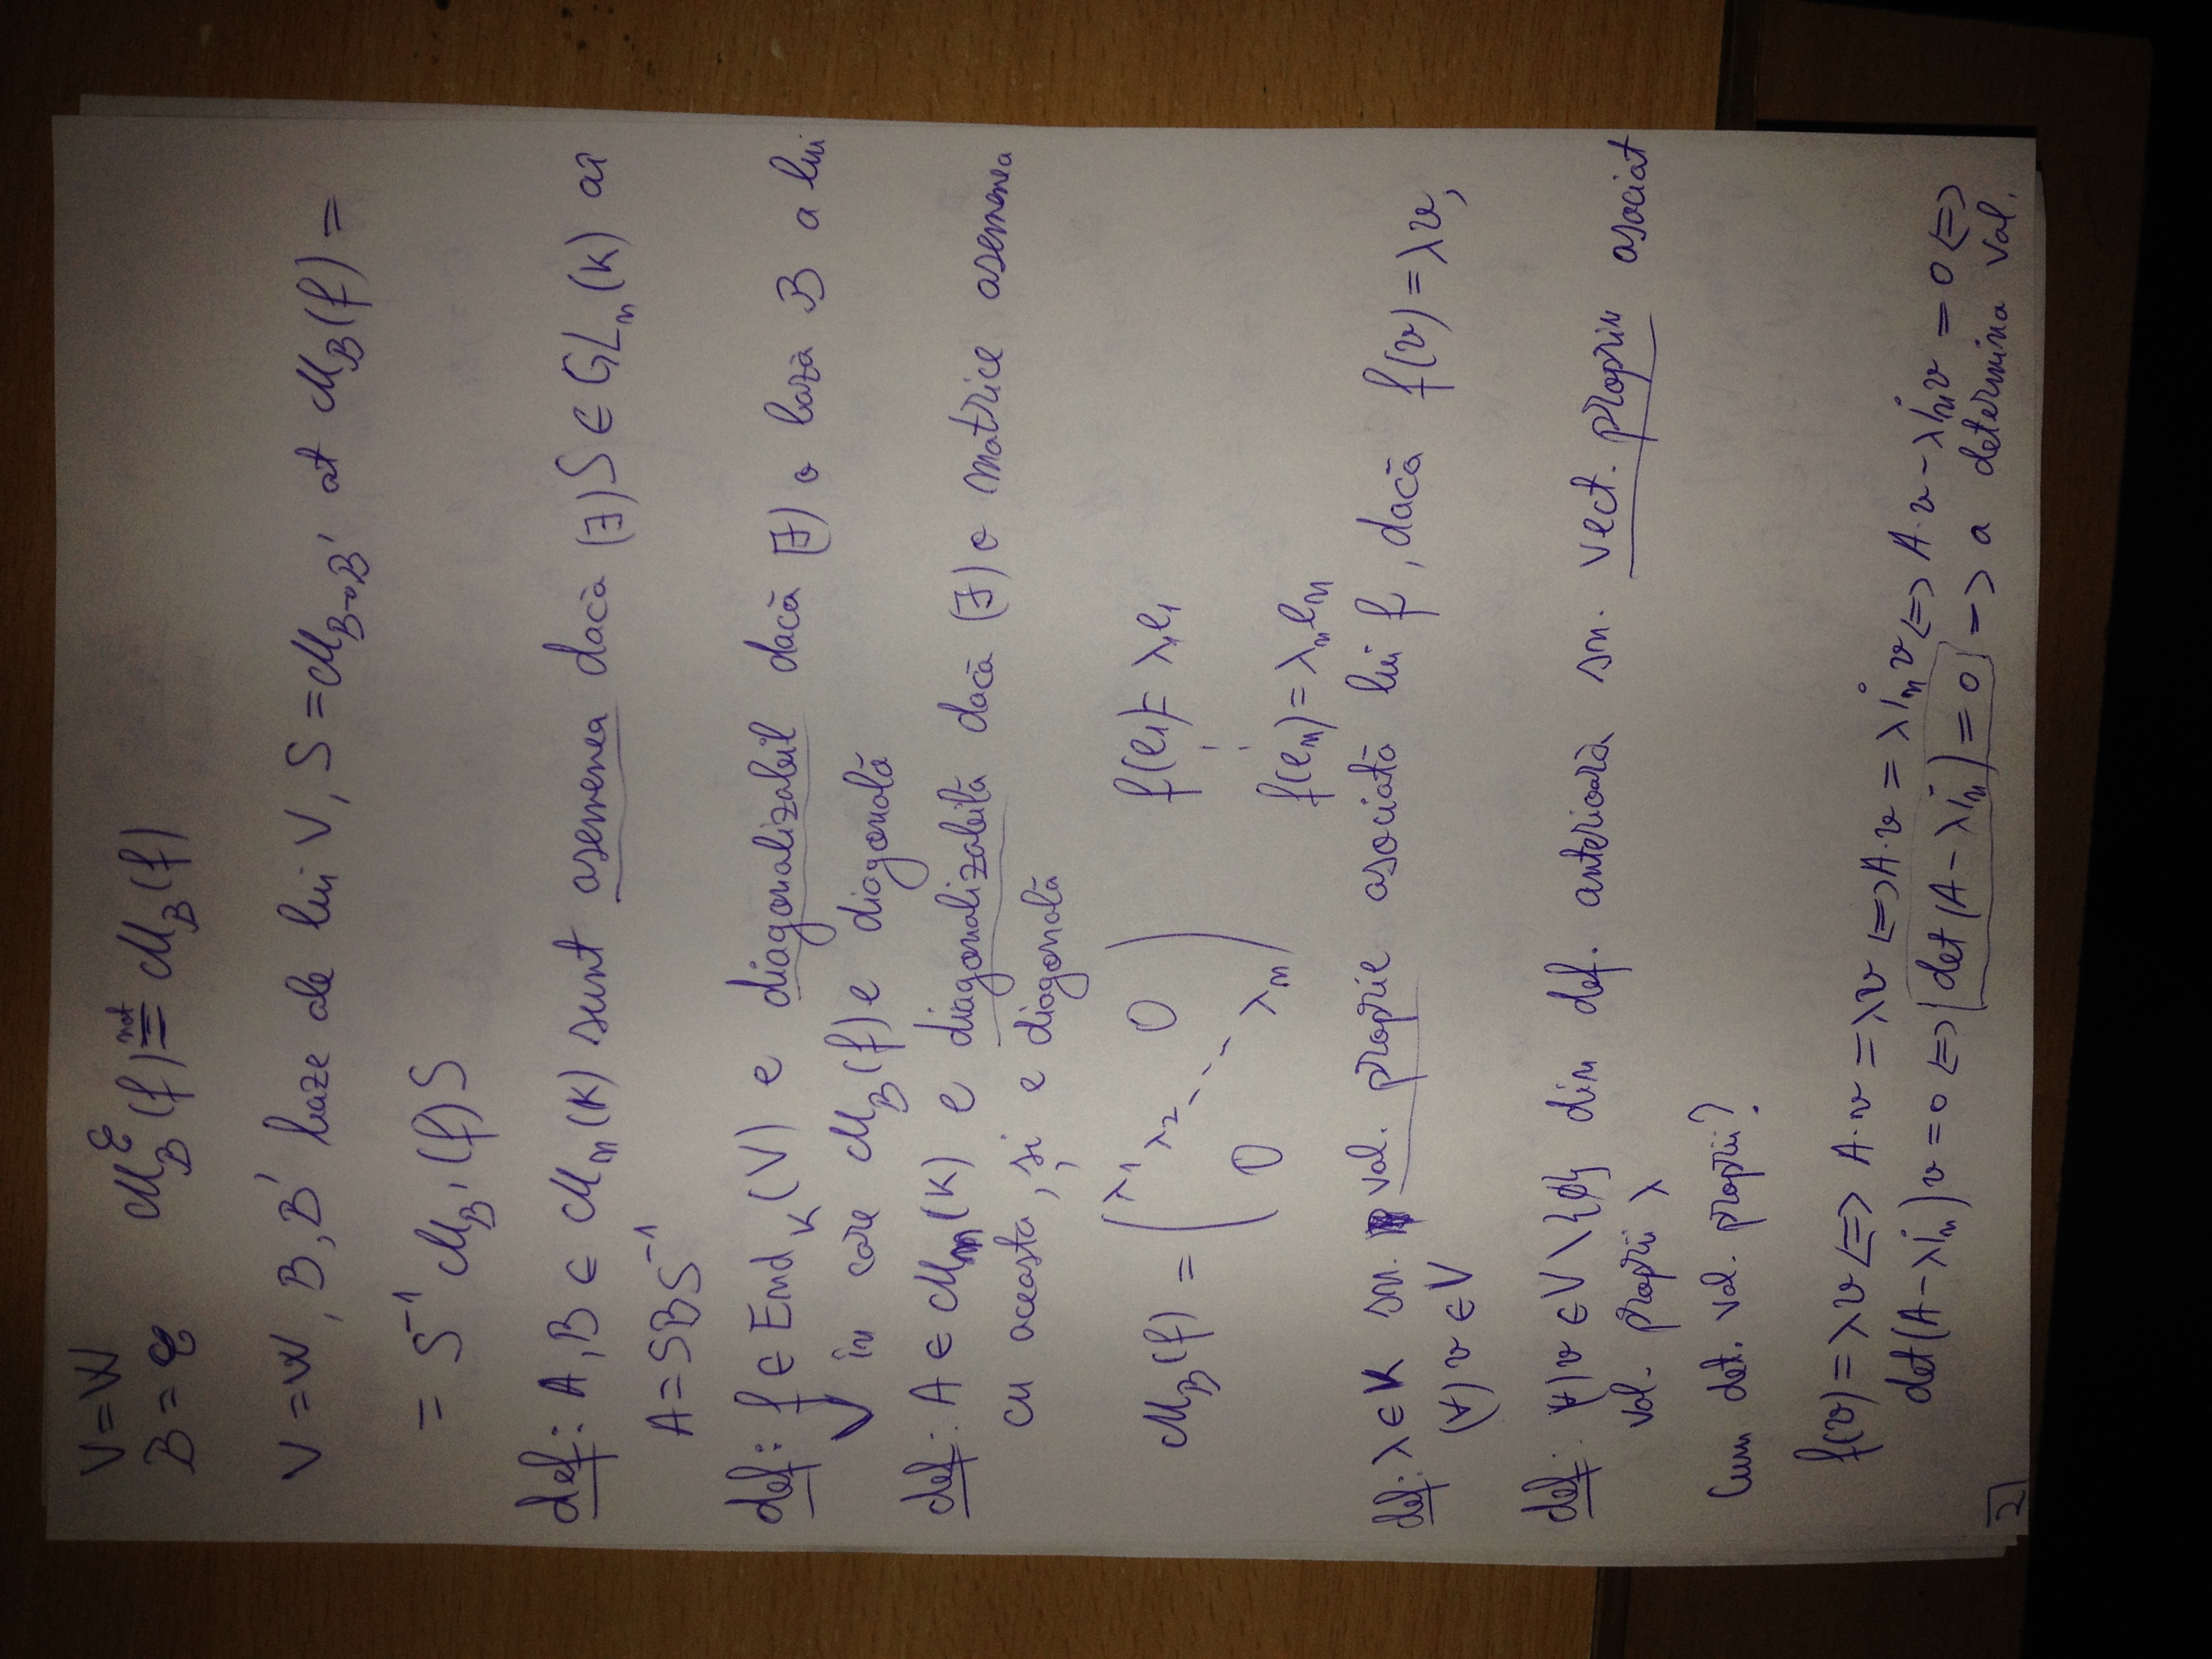 V = W
B = ℰ   M_B^ℰ (f) ≝not M_B (f)
V = W, B, B' baze ale lui V, S = M_{B→B'} at M_B (f) =
= S^{-1} M_{B'} (f) S
def: A, B ∈ M_n (K) sunt asemenea dacă (∃) S ∈ GL_n (K) aî
A = SBS^{-1}
def: f ∈ End_K (V) e diagonalizabil dacă (∃) o bază B a lui
V în care M_B (f) e diagonală
def: A ∈ M_n (K) e diagonalizabilă dacă (∃) o matrice asemenea
cu aceasta, și e diagonală
M_B (f) = ( λ_1 λ_2 ⋱ λ_n 0 0 )   f(e_1) = λ_1 e_1
⋮
f(e_n) = λ_n e_n
def: λ ∈ K sn. val. proprie asociată lui f, dacă f(v) = λv,
(∀) v ∈ V
def: (∀) v ∈ V \ {∅} din def. anterioară sn. vect. propriu asociat
val. proprii λ
Cum det. val. proprii?
f(v) = λv <=> A·v = λv <=> A·v = λ i_n v <=> A·v - λ i_n v = 0 <=>
det(A - λ i_n) v = 0 <=> det(A - λ i_n) = 0 -> a determina val.
2